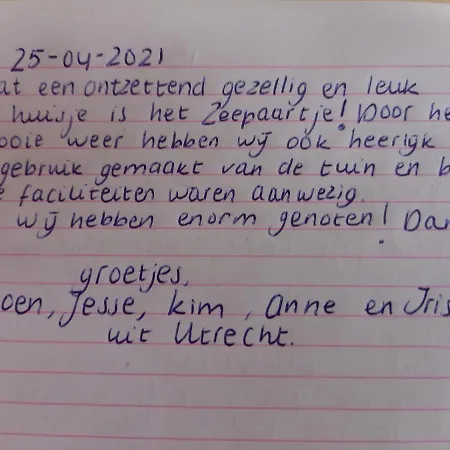 25-04-2021
at een ontzettend gezellig en leuk
huisje is het Zeepaartje! Door he
ooie weer hebben wij ook heerijk
gebruik gemaakt van de tuin en b
e faciliteiten waren aanwezig.
wij hebben enorm genoten! Dan
groetjes,
oen, Jesse, Kim, Anne en Iris
uit Utrecht.